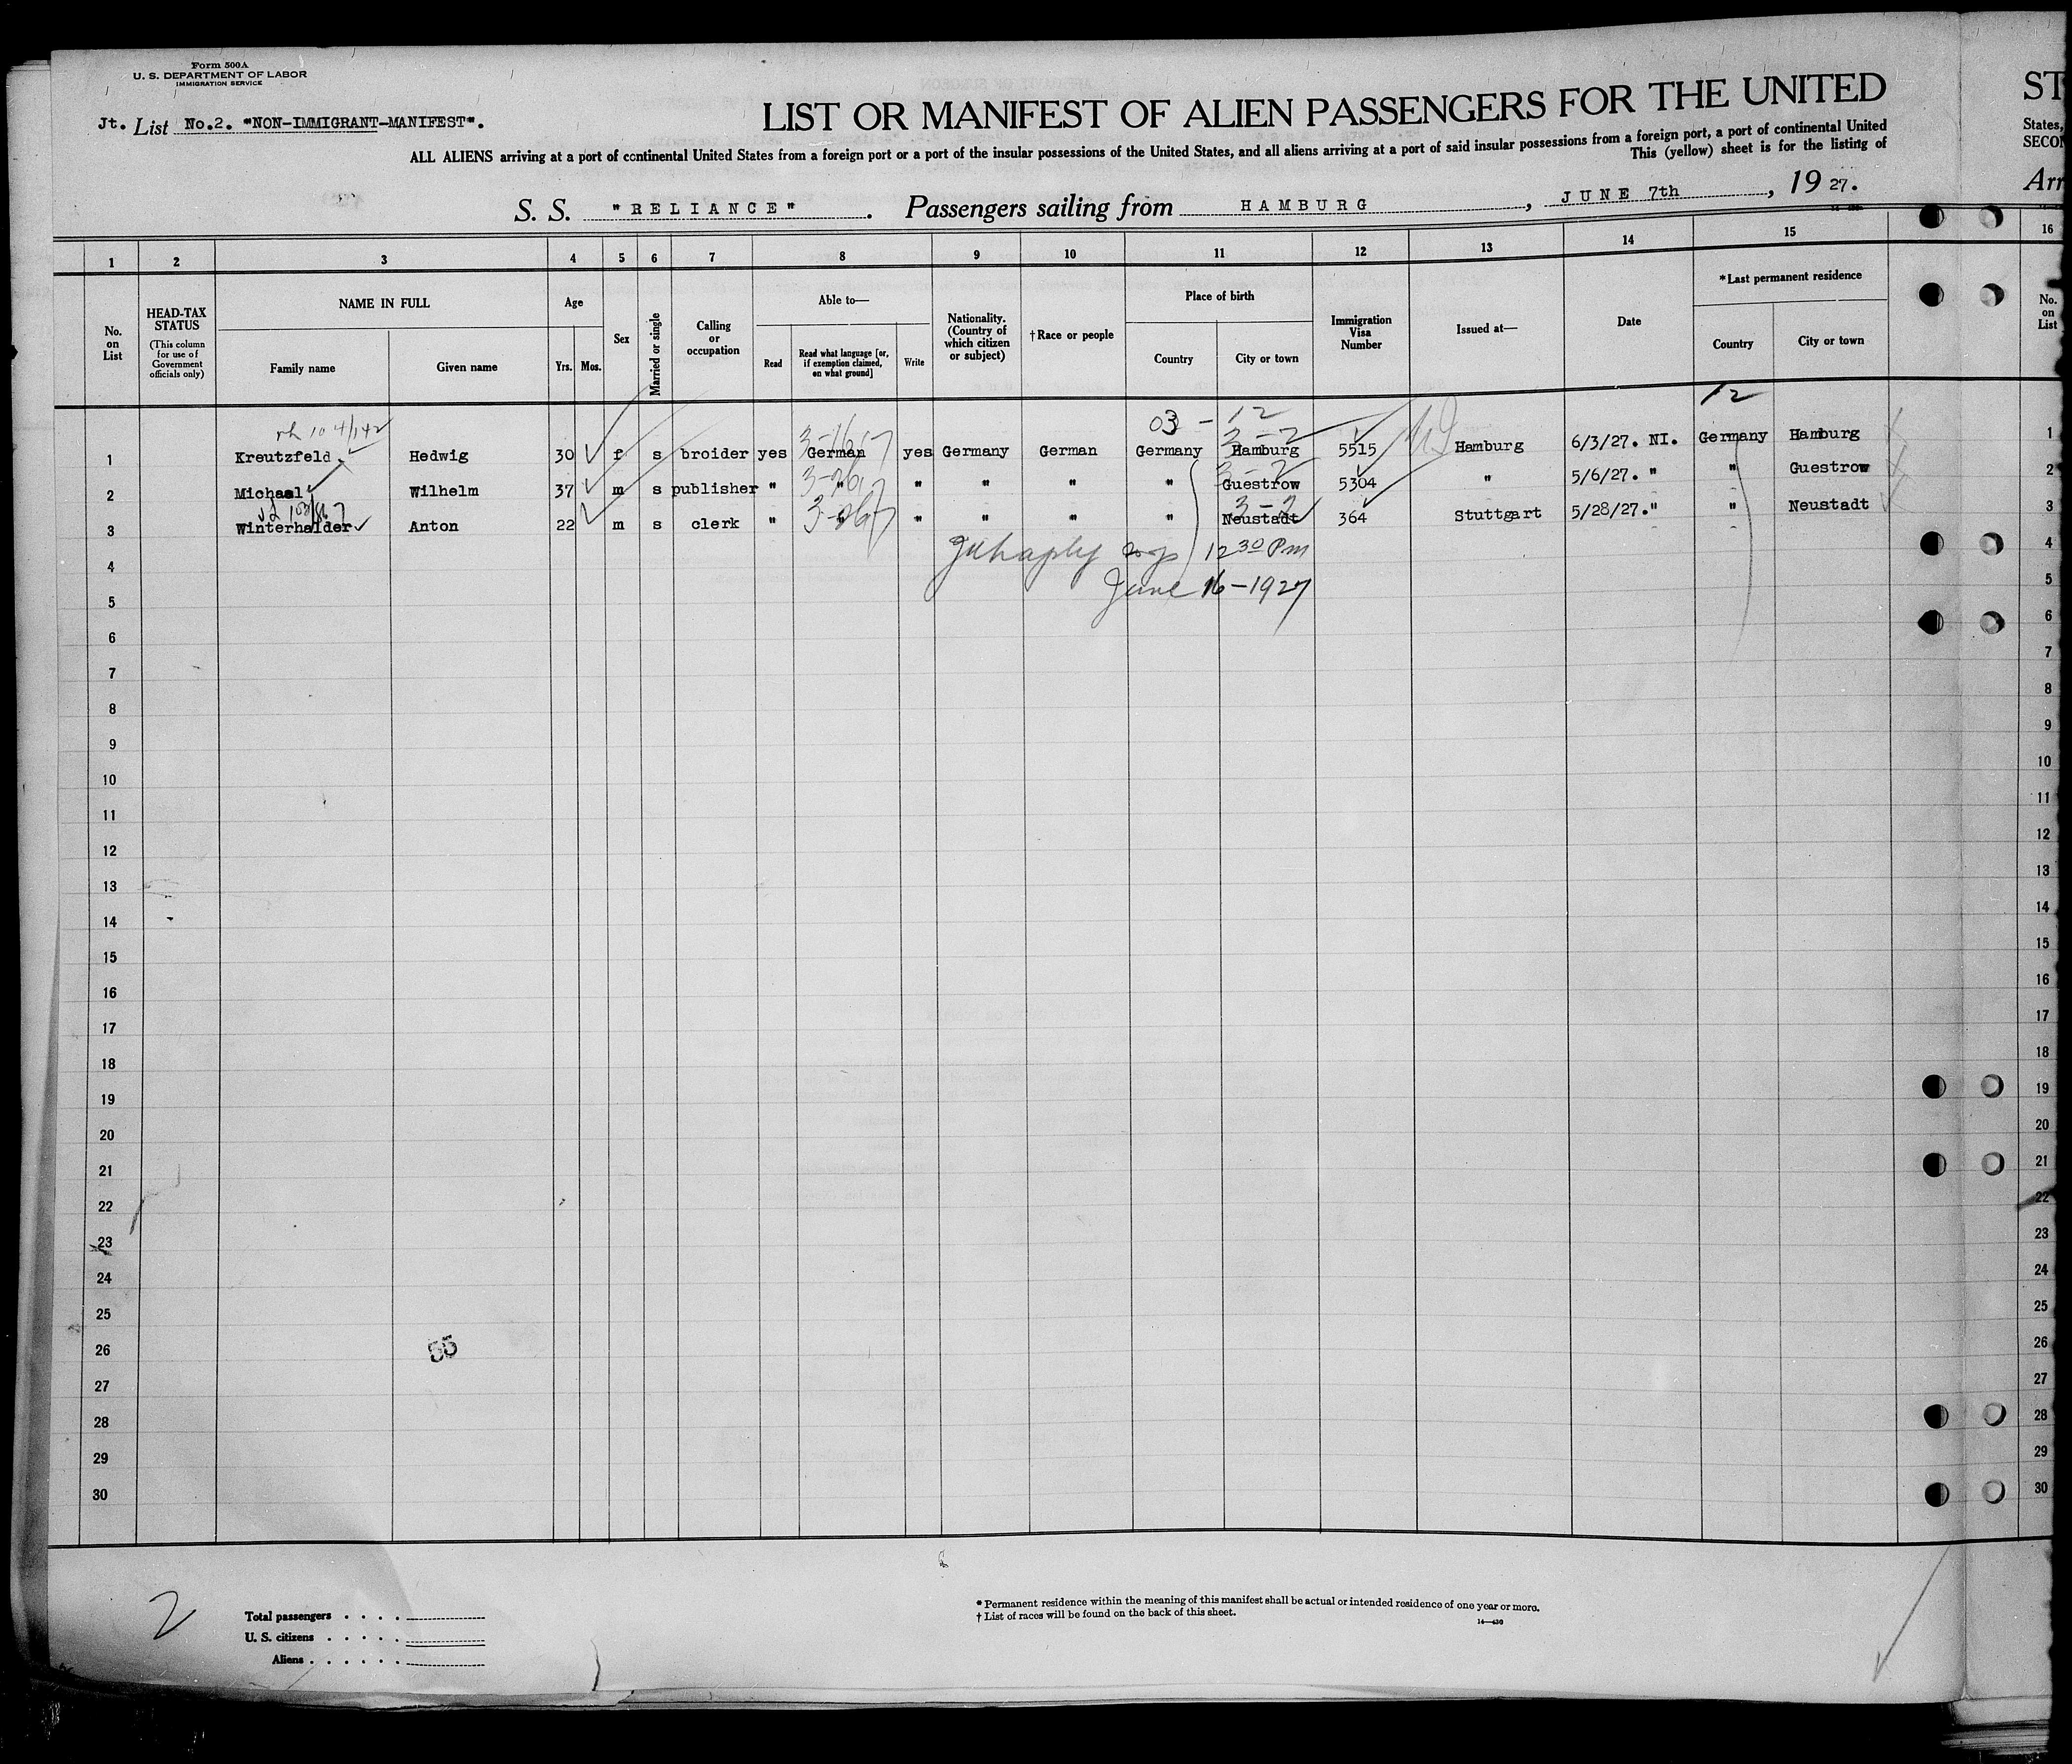 Form 500A
U. S. DEPARTMENT OF LABOR
IMMIGRATION SERVICE
Jt. List No.2. "NON-IMMIGRANT-MANIFEST".
LIST OR MANIFEST OF ALIEN PASSENGERS FOR THE UNITED
ST
ALL ALIENS arriving at a port of continental United States from a foreign port or a port of the insular possessions of the United States, and all aliens arriving at a port of said insular possessions from a foreign port, a port of continental United
States,
This (yellow) sheet is for the listing of
SECON
S. S. "RELIANCE". Passengers sailing from HAMBURG, JUNE 7th, 19 27.
Arr
1 2 3 4 5 6 7 8 9 10 11 12 13 14 15 16
No. on List
HEAD-TAX STATUS
(This column for use of Government officials only)
NAME IN FULL
Family name Given name
Age
Yrs. Mos.
Sex
Married or single
Calling or occupation
Able to—
Read
Read what language [or, if exemption claimed, on what ground]
Write
Nationality. (Country of which citizen or subject)
† Race or people
Place of birth
Country City or town
Immigration Visa Number
Issued at—
Date
*Last permanent residence
Country City or town
No. on List
12
03 - 12
104/142
3-2
1 Kreutzfeld Hedwig 30 f s broider yes German yes Germany German Germany Hamburg 5515 Hamburg 6/3/27. NI. Germany Hamburg 1
3-2
2 Michael Wilhelm 37 m s publisher " " " " " " Guestrow 5304 " 5/6/27. " " Guestrow 2
3-2
3 Winterhalder Anton 22 m s clerk " " " " " " Neustadt 364 Stuttgart 5/28/27. " " Neustadt 3
12 30 Pm
4 4
June 16-1927
5 5
6 6
7 7
8 8
9 9
10 10
11 11
12 12
13 13
14 14
15 15
16 16
17 17
18 18
19 19
20 20
21 21
22 22
23 23
24 24
25 25
26 55 26
27 27
28 28
29 29
30 30
2
Total passengers . . . .
U. S. citizens . . . . .
Aliens . . . . . .
* Permanent residence within the meaning of this manifest shall be actual or intended residence of one year or more.
† List of races will be found on the back of this sheet.
14—430